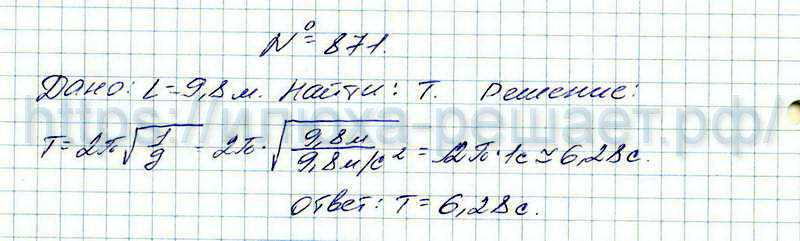 № 871.
Дано: L=9,8 м. Найти: T. Решение:
T = 2π√(l/g) = 2π·√(9,8 м / 9,8 м/с²) = 2π·1с ≃ 6,28с.
Ответ: T = 6,28с.
https://школа-решает.рф/